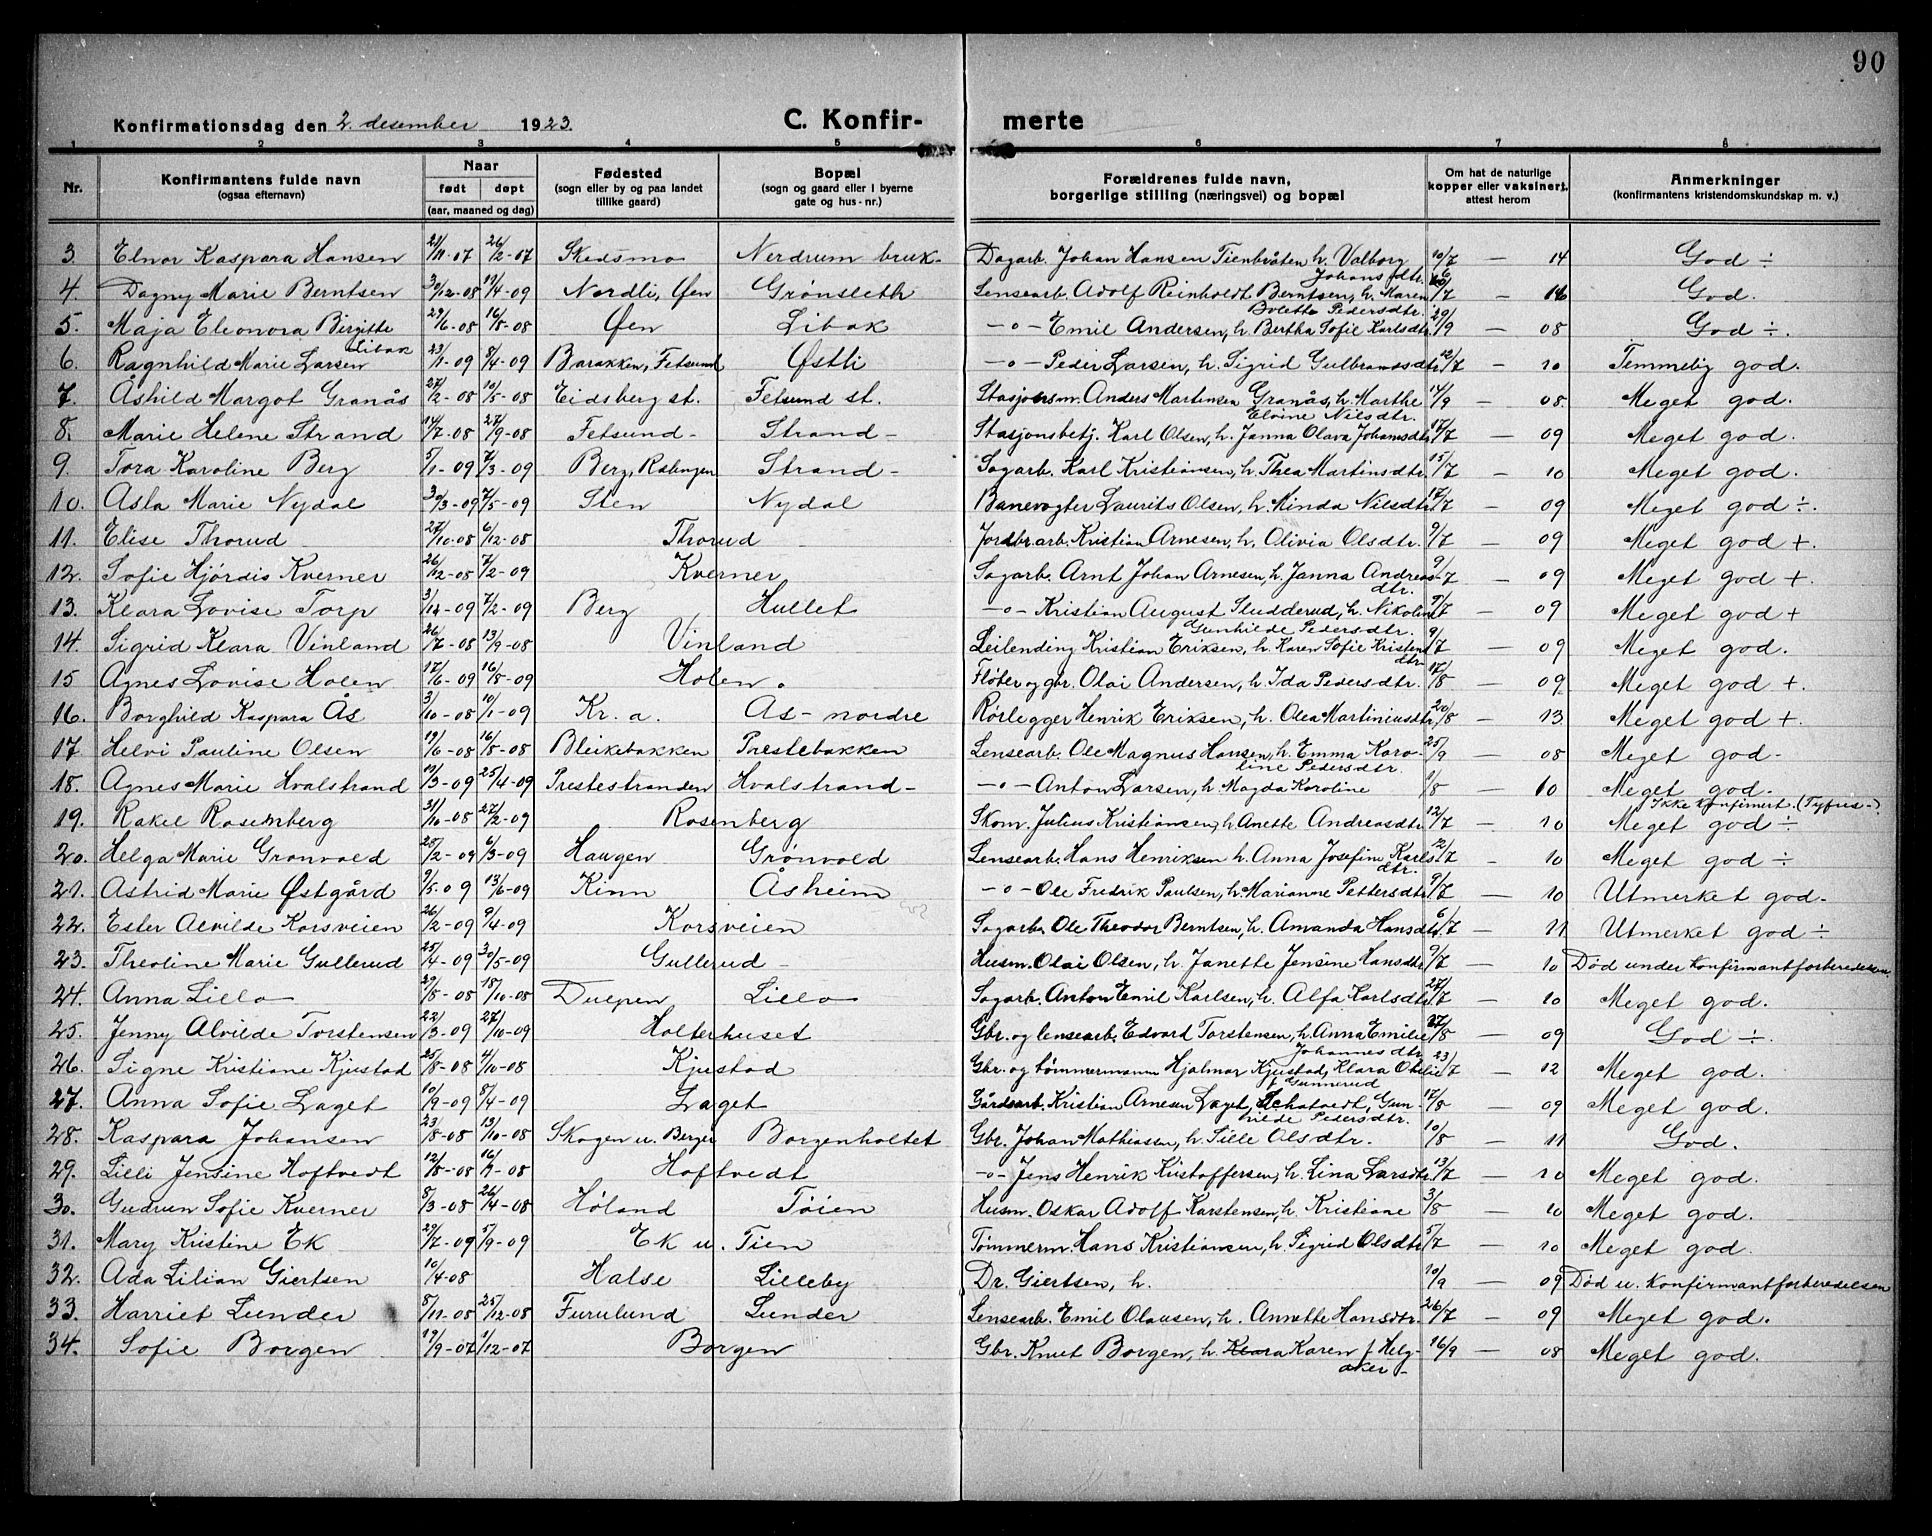 90
Konfirmationsdag den 2. desember 1923. C. Konfirmerte
1 2 3 4 5 6 7 8
Nr. Konfirmantens fulde navn (ogsaa efternavn) Naar født døpt (aar, maaned og dag) Fødested (sogn eller by og paa landet tillike gaard) Bopæl (sogn og gaard eller i byerne gate og hus-nr.) Forældrenes fulde navn, borgerlige stilling (næringsvei) og bopæl Om hat de naturlige kopper eller vaksinert, attest herom Anmerkninger (konfirmantens kristendomskundskap m. v.)
3. Elnor Kaspara Hansen 21/11-07 26/12-07 Skedsmo Nerdrum bruk- Dagarb. Johan Hansen Tienbråten h. Valborg Johansdtr. 10/7 — 14 God ÷
4. Dagny Marie Berntsen 30/12-08 19/4-09 Nordli, Øen Grønsleth Lensearb. Adolf Reinholdt Berntsen, h. Maren Bolette Pedersdtr. /7 — 16 God.
5. Maja Eleonora Birgitte Libak 29/6-08 16/8-08 Øen Libak -o- Emil Andersen, h. Bertha Sofie Karlsdtr. 29/9 — 08 God ÷.
6. Ragnhild Marie Larsen 23/1-09 8/4-09 Barakken, Fetsund Østli -o- Peder Larsen, h. Sigrid Gulbrandsdtr. 12/7 — 10 Temmelig god.
7. Åshild Margot Granås 27/2-08 10/5-08 Eidsberg st. Fetsund st. Stasjonsm. Anders Martinsen Granås, h. Marthe Elvine Nilsdtr. 14/9 — 08. Meget god.
8. Marie Helene Strand 14/7-08 27/9-08 Fetsund- Strand- Stasjonsbetj. Karl Olsen, h. Janna Olava Johansdtr. 17/7 — 09 Meget god.
9. Tora Karoline Berg 5/1-09 7/3-09 Berg, Rælingen Strand- Sagarb. Karl Kristiansen, h. Thea Martinsdtr. 15/7 — 10 Meget god.
10. Asla Marie Nydal 30/3-09 7/5-09 Sten Nydal Banevogter Laurits Olsen, h. Minda Nilsdtr. 17/7 — 09 Meget god ÷.
11. Elise Thorud 27/10-08 6/12-08 Thorud Jordbr.arb. Kristian Arnesen, h. Olivia Olsdtr. 9/7 — 09 Meget god +.
12. Sofie Hjørdis Kverner 26/12-08 7/2-09 Kverner Sagarb. Arnt Johan Arnesen, h. Janna Andreasdtr. 9/7 — 09 Meget god +.
13. Klara Lovise Torp 3/1-09 7/2-09 Berg Hullet -o- Kristian August Studderud, h. Nikoline Gunhilde Pedersdtr. 9/7 — 09 Meget god +
14. Sigrid Klara Vinland 26/7-08 13/9-08 Vinland Leilending Kristian Eriksen, h. Karen Sofie Kristensdtr. 9/7 — 09 Meget god.
15 Agnes Lovise Holen 17/6-09 16/8-09 Holen. Fløter og gbr. Olai Andersen, h. Ida Pedersdtr. 17/8 — 09 Meget god +.
16. Borghild Kaspara Ås 3/10-08 10/1-09 Kr.a. Ås-nordre Rørlegger Henrik Eriksen, h. Olea Martiniusdtr. 20/8 — 13 Meget god +.
17. Helvi Pauline Olsen 19/6-08 16/8-08 Bleikebakken Prestebakken Lensearb. Ole Magnus Hansen, h. Emma Karoline Pedersdtr. 25/9 — 08 Meget god-
18. Agnes Marie Hvalstrand 19/3-09 25/4-09 Prestestranden Hvalstrand- -o- Anton Larsen, h. Magda Karoline 1/8 — 10 Meget god.
Ikke konfirmert. (Tyfus-)
19. Rakel Rosemberg 31/10-08 27/2-09 Rosenberg Skom. Julius Kristiansen, h. Anette Andreasdtr. 12/7 — 10 Meget god ÷
20. Helga Marie Grønvold 25/2-09 6/3-09 Haugen Grønvold Lensearb. Hans Henriksen h. Anna Josefine Karlsdtr. 12/7 — 10 Meget god ÷
21. Astrid Marie Østgård 9/5-09 13/6-09 Kinn Åsheim -o- Ole Fredrik Paulsen, h. Marianne Pettersdtr. 9/7 — 10 Utmerket god.
22. Ester Alvilde Korsveien 26/2-09 9/4-09 Korsveien Sagarb. Ole Theodor Berntsen, h. Amanda Hansdtr. 6/7 — 11 Utmerket god ÷
23. Theoline Marie Gullerud 25/4-09 30/5-09 Gullerud- Husm. Olai Olsen, h. Janette Jensine Hansdtr. 9/7 — 10 Død under konfirmantforberedelsen
24. Anna Lillo 29/8-08 18/10-08 Dulpen Lillo Sagarb. Anton Emil Karlsen, h. Alfa Karlsdtr. 27/7 — 10 Meget god.
25. Jenny Alvilde Torstensen 22/3-09 27/10-09 Holterhuset Gbr. og lensearb. Edvard Torstensen, h. Anna Emilie Johannesdtr. 27/8 — 09 God ÷.
26. Signe Kristiane Kjustad 25/8-08 4/10-08 Kjustad Gbr. og tømmermann Hjalmar Kjustad, Klara Otelie f Gunnerud 23/7 — 12 Meget god.
27. Anna Sofie Laget 10/9-09 8/4-09 Laget Gårdsarb. Kristian Arnesen Laget, Gunhilde Pedersdtr. 17/8 — 09 Meget god.
28. Kaspara Johansen 23/8-08 13/10-08 Skogen u. Berger Borgenholtet Gbr. Johan Mathiassen, h. Lille Olsdtr. 10/8 — 11 God.
29. Lilli Jensine Hoftvedt 12/8-08 16/9-08 Hoftvedt -o- Jens Henrik Kristoffersen, h. Lina Larsdtr. 13/7 — 10 Meget god.
30. Gudrun Sofie Kverner 8/3-08 26/4-08 Høland Tøien Husm. Oskar Adolf Karstensen, h. Kristiane 3/8 — 10 Meget god.
31. Mary Kristine Ek 29/7-09 5/9-09 Ek u. Tien Tømmerm. Hans Kristiansen, h. Sigrid Olsdtr. 5/7 — 10 Meget god.
32. Ada Lilian Giertsen 10/4-08 Halse Lilleby Dr. Giertsen, h. 10/9 — 09 Død u. konfirmantforberedelsen
33. Harriet Lunder 8/11-08 25/12-08 Furulund Lunder Lensearb. Emil Olausen, h. Annette Hansdtr. 26/7 — 09 Meget god.
34. Sofie Borgen 19/9-07 1/12-07 Borgen Gbr. Knut Borgen, h. Klara Karen f Helgaker- 16/9 — 08 Meget god.